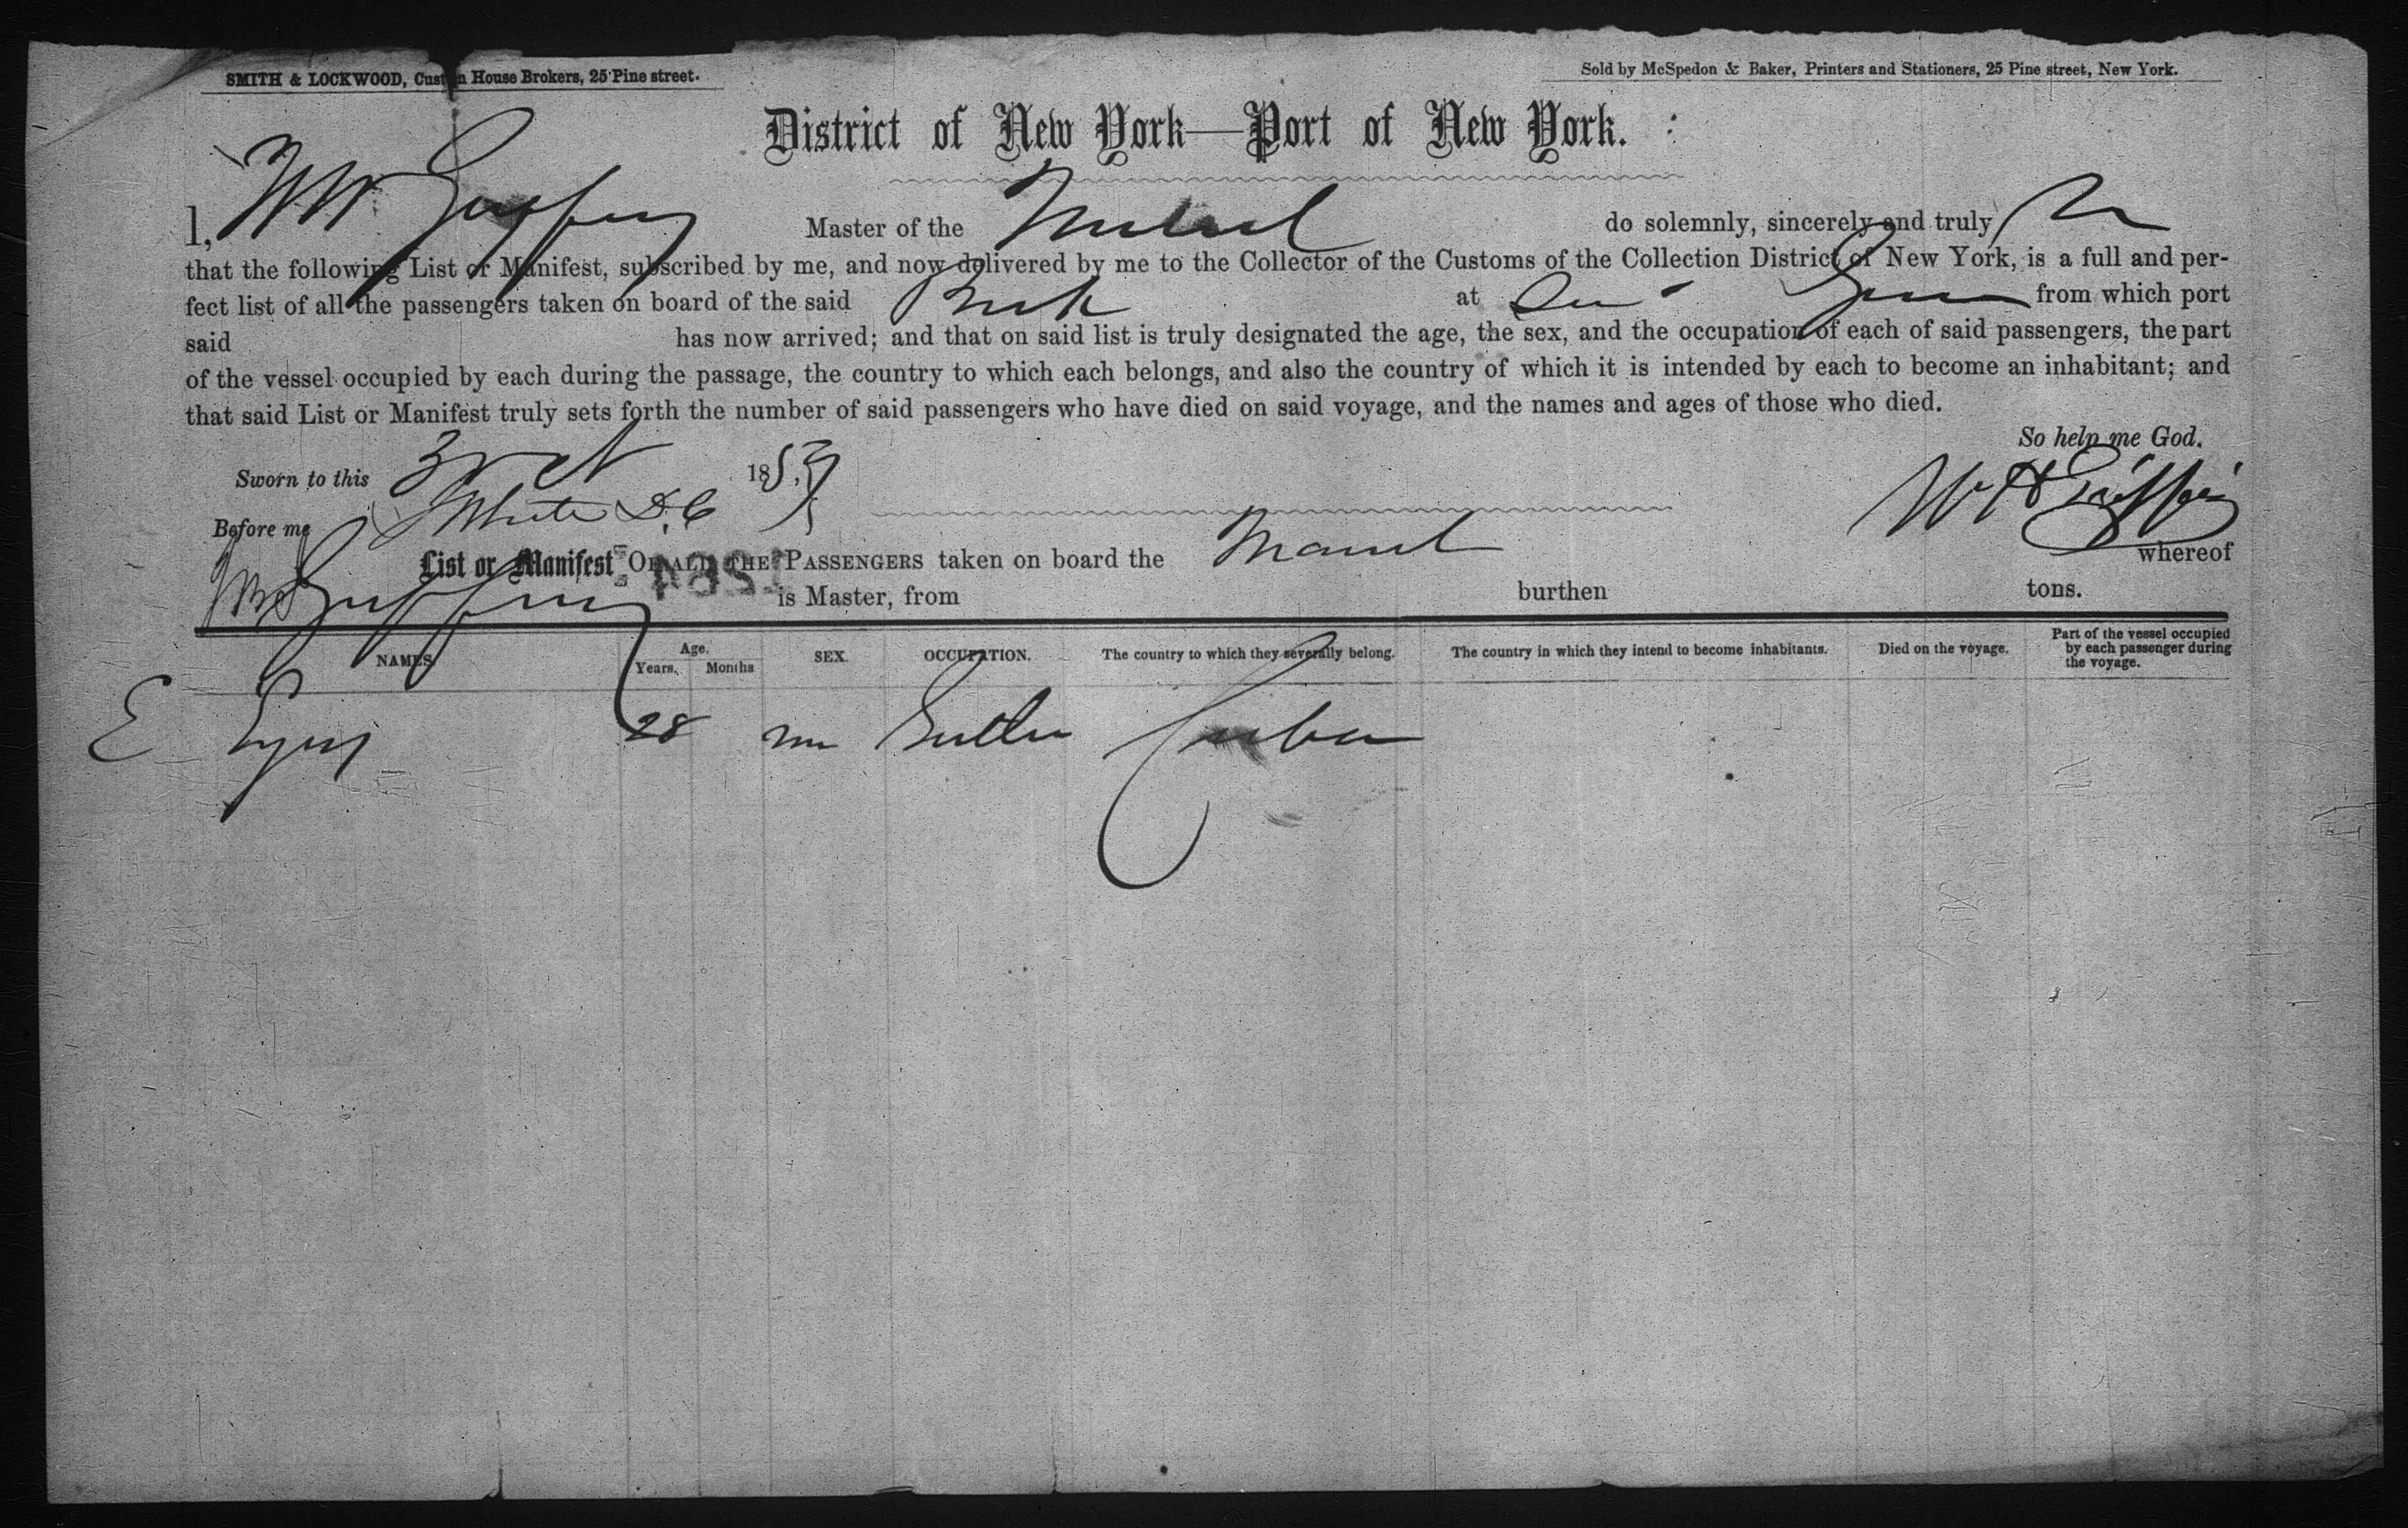 SMITH & LOCKWOOD, Custom House Brokers, 25 Pine street.
Sold by McSpedon & Baker, Printers and Stationers, 25 Pine street, New York.
District of New York—Port of New York.
I, Master of the do solemnly, sincerely and truly
that the following List or Manifest, subscribed by me, and now delivered by me to the Collector of the Customs of the Collection District of New York, is a full and per-
fect list of all the passengers taken on board of the said at from which port
said has now arrived; and that on said list is truly designated the age, the sex, and the occupation of each of said passengers, the part
of the vessel occupied by each during the passage, the country to which each belongs, and also the country of which it is intended by each to become an inhabitant; and
that said List or Manifest truly sets forth the number of said passengers who have died on said voyage, and the names and ages of those who died.
So help me God.
Sworn to this 1853
Before me White D.C
W H Griffin
List or Manifest OF ALL THE PASSENGERS taken on board the whereof
is Master, from burthen tons.
NAMES. Age. Years. Months SEX. OCCUPATION. The country to which they severally belong. The country in which they intend to become inhabitants. Died on the voyage. Part of the vessel occupied by each passenger during the voyage.
E 28 m Cuba